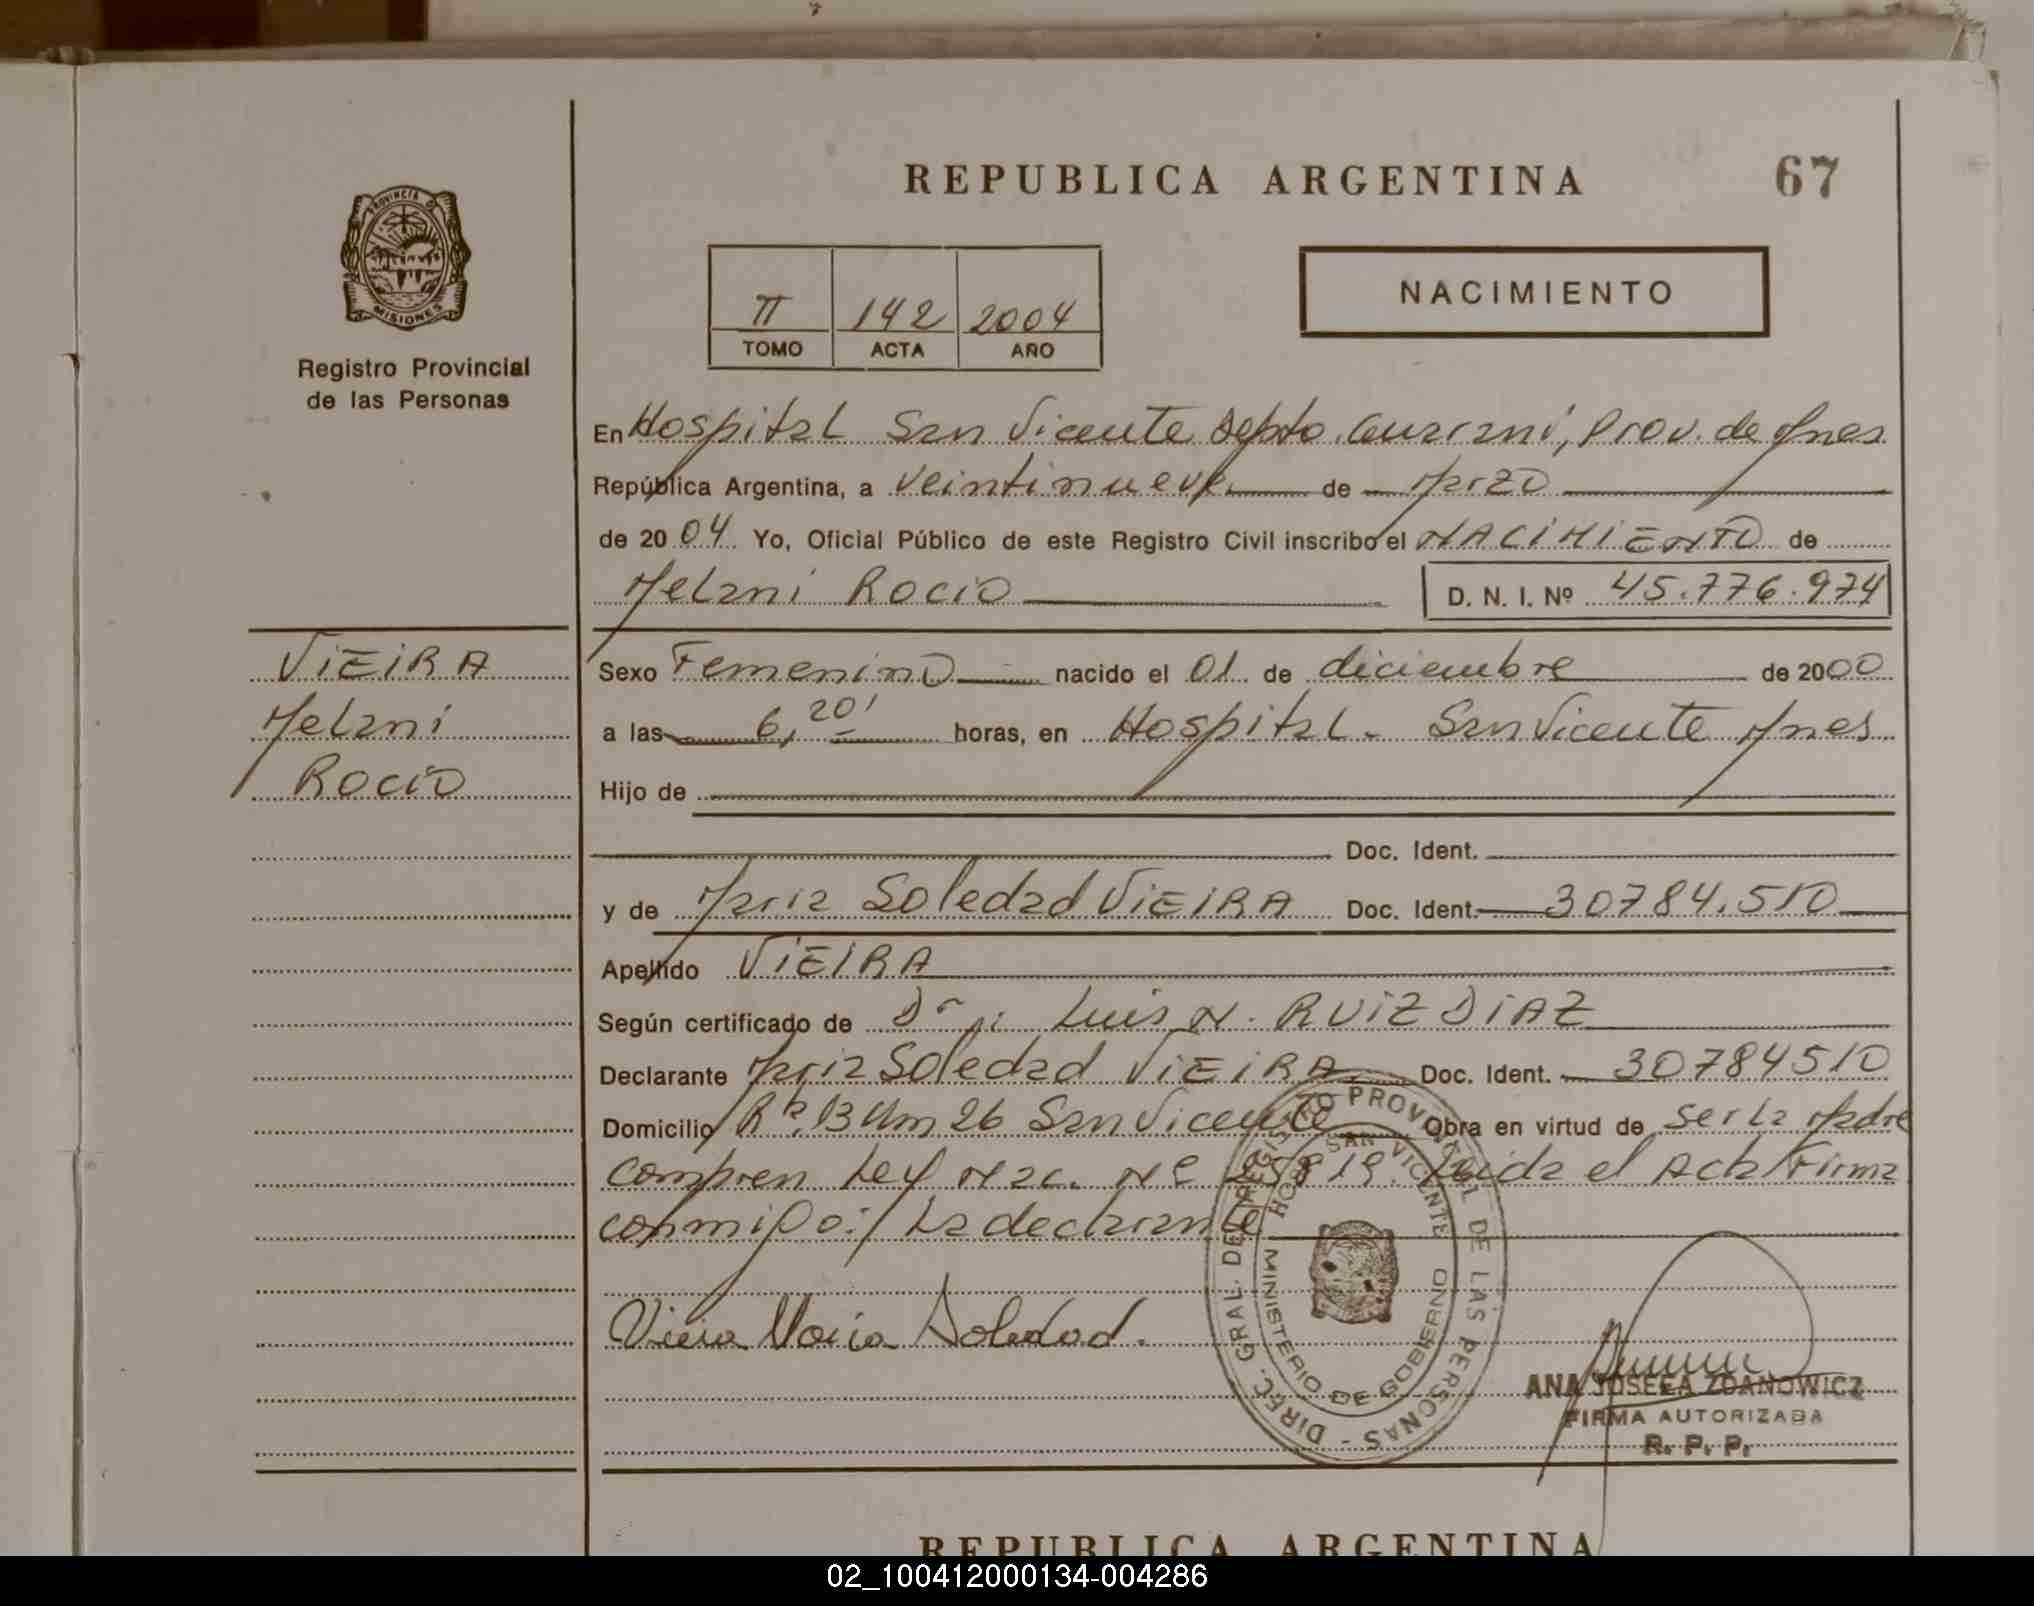 REPUBLICA ARGENTINA
67
PROVINCIA D
MISIONES
Registro Provincial
de las Personas
II 142 2004
TOMO ACTA AÑO
NACIMIENTO
En Hospital San Vicente Depto. Guaraní, Prov. de Mnes
República Argentina, a veintinueve de Marzo
de 2004 Yo, Oficial Público de este Registro Civil inscribo el NACIMIENTO de
Melani Rocio D. N. I. Nº 45.776.974
VIEIRA
Melani
Rocio
Sexo Femenino nacido el 01 de diciembre de 2000
a las 6,20' horas, en Hospital - San Vicente Mnes
Hijo de
Doc. Ident.
y de Maria Soledad VIEIRA Doc. Ident. 30784.510
Apellido VIEIRA
Según certificado de Dr: Luis N. RUIZ DIAZ
Declarante Maria Soledad VIEIRA Doc. Ident. 30784510
Domicilio Rta. 13 Km 26 San Vicente Obra en virtud de ser la Madre
compren Ley Nac. Nº 25819. Leida el Acta Firma
conmigo: La declarante
Vieira Maria Soledad.
DIREC. GRAL. DEL REGISTRO PROVINCIAL DE LAS PERSONAS -
HOSP. SAN VICENTE
MINISTERIO DE GOBIERNO
ANA JOSEFA ZDANOWICZ
FIRMA AUTORIZADA
R. P. P.
REPUBLICA ARGENTINA
02_100412000134-004286